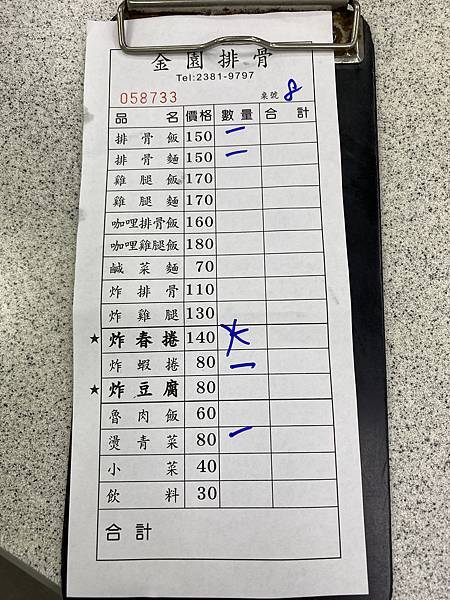 金園排骨
Tel:2381-9797
058733 桌號 8
品名 價格 數量 合計
排骨飯 150 一
排骨麵 150 一
雞腿飯 170
雞腿麵 170
咖哩排骨飯 160
咖哩雞腿飯 180
鹹菜麵 70
炸排骨 110
炸雞腿 130
★炸春捲 140
炸蝦捲 80 一
★炸豆腐 80
魯肉飯 60
燙青菜 80 一
小菜 40
飲料 30
合計